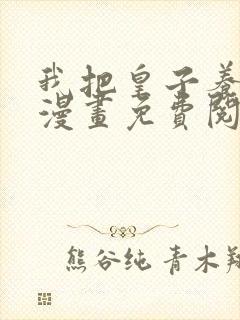 我把皇子養
漫畫免費閱
熊谷纯 青木翔